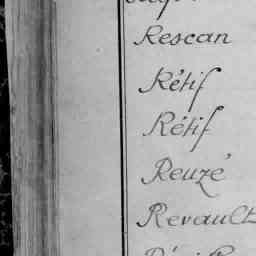 Rescan
Rétif
Rétif
Reuzé
Revault